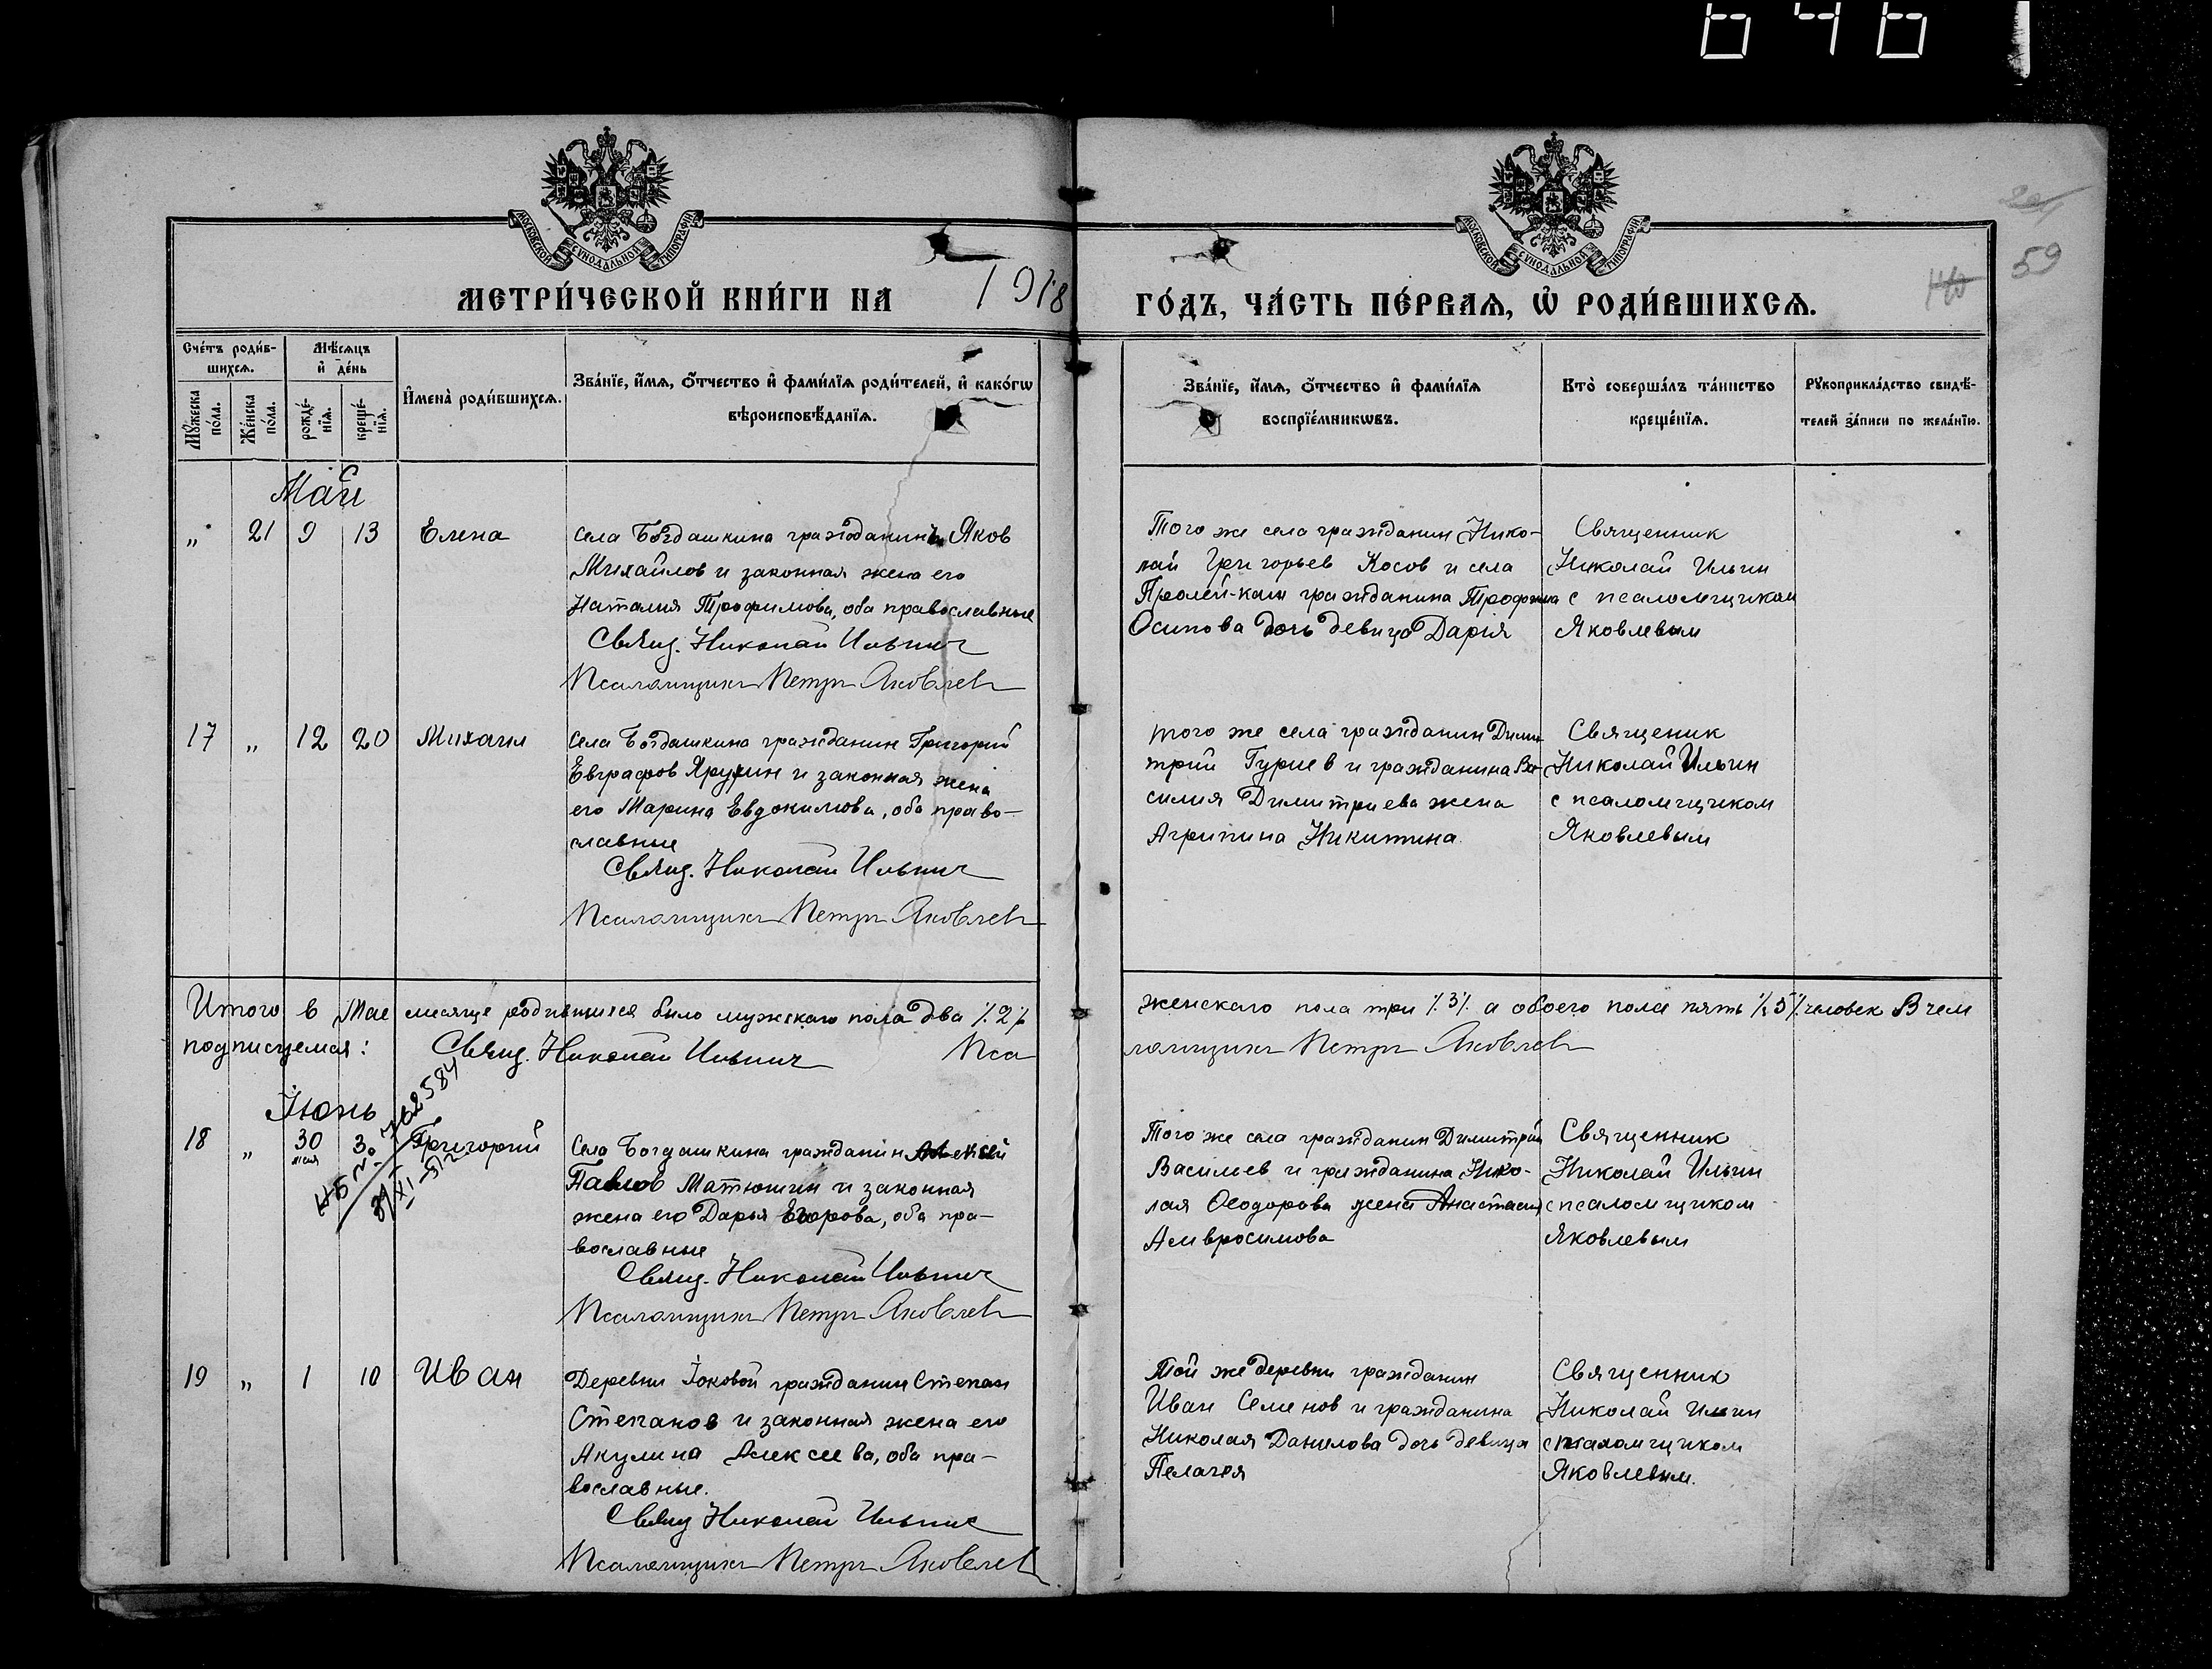 646
МОСКОВСКОЙ СѴНОДАЛЬНОЙ ТИПОГРАФІИ
МОСКОВСКОЙ СѴНОДАЛЬНОЙ ТИПОГРАФІИ
59
МЕТРИ́ЧЕСКОЙ КНИ́ГИ НА 1918 ГО́ДЪ, ЧА́СТЬ ПЕ́РВАѦ, Ѡ҆ РОДИ́ВШИХСѦ.
Сче́тъ роди́в-
шихсѧ.
Мѣ́сѧцъ
и҆ де́нь
Мꙋ́жеска
по́ла.
Же́нска
по́ла.
рожде́-
нїѧ.
креще́-
нїѧ.
И҆мена̀ роди́вшихсѧ.
Зва́нїе, и҆́мѧ, ѻ҆́тчество и҆ фами́лїѧ роди́телей, и҆ како́гѡ
вѣроисповѣ́данїѧ.
Зва́нїе, и҆́мѧ, ѻ҆́тчество и҆ фами́лїѧ
воспрїе́мникѡвъ.
Кто̀ соверша́лъ та́инство
креще́нїѧ.
Рꙋкоприкла́дство свидѣ́-
телей за́писи по жела́нїю.
Май
" 21 9 13 Елена
Села Богдашкина гражданинъ Яков
Михайлов и законная жена его
Наталия Трофимова, оба православные
Свящ. Николай Ильин
Псаломщикъ Петръ Яковлевъ
Того же села гражданин Нико-
лай Григорьев Косов и села
Пролей-каш гражданина Трофима
Осипова дочь девица Дария
Священник
Николай Ильин
с псаломщиком
Яковлевым
17 " 12 20 Михаил
Села Богдашкина гражданин Григорий
Евграфов Ярухин и законная жена
его Марина Евдокимова, оба право-
славные
Свящ. Николай Ильин
Псаломщикъ Петръ Яковлевъ
того же села гражданин Дими-
трий Гуриев и гражданина Ва-
силия Димитриева жена
Агрипина Никитина
Священик
Николай Ильин
с псаломщиком
Яковлевым
Итого в Мае месяце родившихся было мужскаго пола два /.2./ женскаго пола три /.3/. а обоего пола пять /.5/. человек В чем
подписуемся: Свящ. Николай Ильин Псаломщикъ Петръ Яковлевъ
Іюнь
18 " 30 мая 30 Григорий
762584
Села Богдашкина гражданин Алексей
Павлов Матюшин и законная
жена его Дарья Егорова, оба пра-
вославные
Свящ. Николай Ильин
Псаломщикъ Петръ Яковлевъ
Того же села гражданин Димитрий
Васильев и гражданина Нико-
лая Феодорова жена Анастасия
Амвросимова
Священник
Николай Ильин
с псаломщиком
Яковлевым
19 " 1 10 Иван
Деревни Іоковой гражданин Степан
Степанов и законная жена его
Акулина Алексеева, оба пра-
вославные.
Свящ Николай Ильин
Псаломщикъ Петръ Яковлев
Той же деревни гражданин
Иван Семенов и гражданина
Николая Данилова дочь девица
Пелагея
Священник
Николай Ильин
с псаломщиком
Яковлевым.